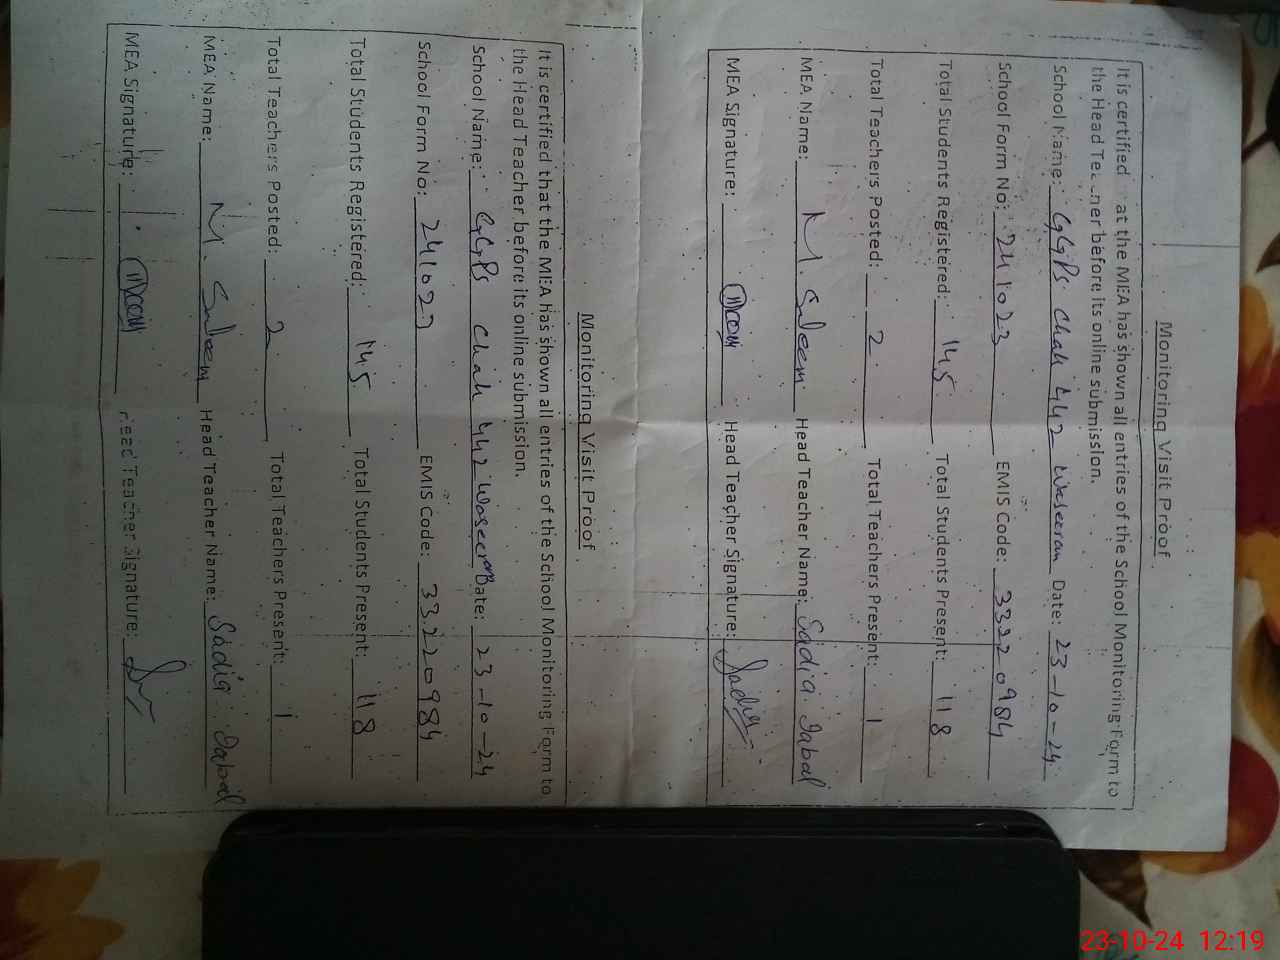 Monitoring Visit Proof
It is certified at the MEA has shown all entries of the School Monitoring Form to
the Head Te ner before its online submission.
School Name: GGPS Chah 442 Waseeran Date: 23-10-24
School Form No: 241023 EMIS Code: 33220984
Total Students Registered: 145 Total Students Present: 118
Total Teachers Posted: 2 Total Teachers Present: 1
MEA Name: M. Saleem Head Teacher Name: Sadia Iqbal
MEA Signature: Head Teacher Signature: Sadia
Monitoring Visit Proof
It is certified that the MEA has shown all entries of the School Monitoring Form to
the Head Teacher before its online submission.
School Name: GGPS Chah 442 Waseeran Date: 23-10-24
School Form No: 241023 EMIS Code: 33220984
Total Students Registered: 145 Total Students Present: 118
Total Teachers Posted: 2 Total Teachers Present: 1
MEA Name: M. Saleem Head Teacher Name: Sadia Iqbal
MEA Signature: Head Teacher Signature:
23-10-24 12:19